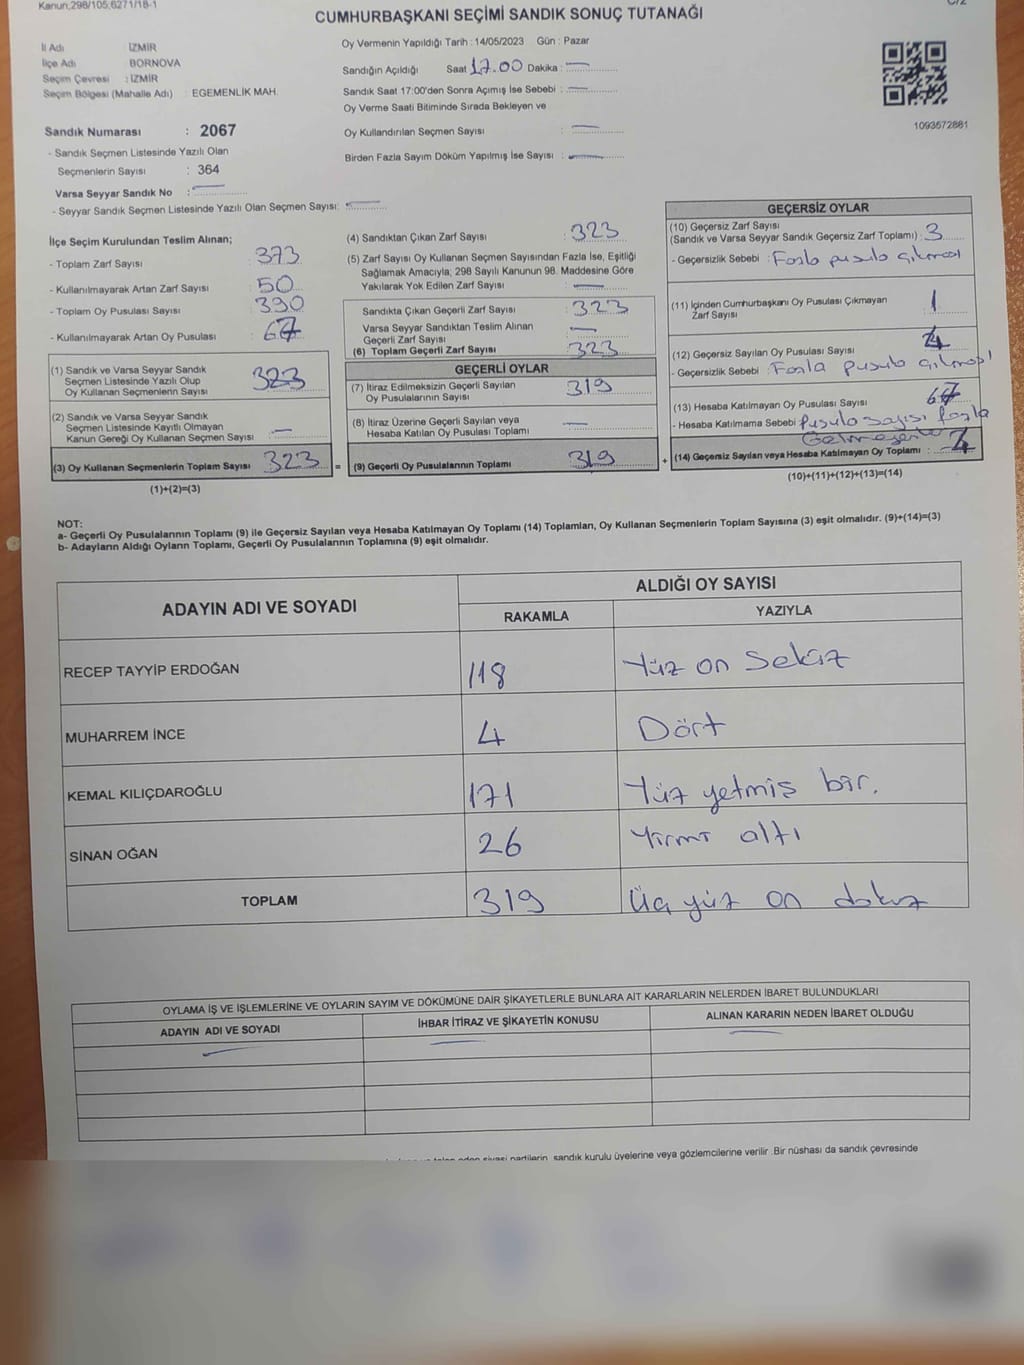 Kanun,298/105;6271/18-1
CUMHURBAŞKANI SEÇİMİ SANDIK SONUÇ TUTANAĞI
İl Adı İZMİR
İlçe Adı BORNOVA
Seçim Çevresi : İZMİR
Seçim Bölgesi (Mahalle Adı) : EGEMENLİK MAH.
Sandık Numarası : 2067
- Sandık Seçmen Listesinde Yazılı Olan
Seçmenlerin Sayısı : 364
Varsa Seyyar Sandık No : —
- Seyyar Sandık Seçmen Listesinde Yazılı Olan Seçmen Sayısı: —
Oy Vermenin Yapıldığı Tarih : 14/05/2023 Gün : Pazar
Sandığın Açıldığı Saat 17.00 Dakika : —
Sandık Saat 17:00'den Sonra Açımış İse Sebebi : —
Oy Verme Saati Bitiminde Sırada Bekleyen ve
Oy Kullandırılan Seçmen Sayısı : —
Birden Fazla Sayım Döküm Yapılmış İse Sayısı : —
1093572881
İlçe Seçim Kurulundan Teslim Alınan;
- Toplam Zarf Sayısı : 373
- Kullanılmayarak Artan Zarf Sayısı : 50
- Toplam Oy Pusulası Sayısı : 390
- Kullanılmayarak Artan Oy Pusulası : 67
(1) Sandık ve Varsa Seyyar Sandık
Seçmen Listesinde Yazılı Olup
Oy Kullanan Seçmenlerin Sayısı : 323
(2) Sandık ve Varsa Seyyar Sandık
Seçmen Listesinde Kayıtlı Olmayan
Kanun Gereği Oy Kullanan Seçmen Sayısı : —
(3) Oy Kullanan Seçmenlerin Toplam Sayısı : 323 =
(1)+(2)=(3)
(4) Sandıktan Çıkan Zarf Sayısı : 323
(5) Zarf Sayısı Oy Kullanan Seçmen Sayısından Fazla İse, Eşitliği
Sağlamak Amacıyla; 298 Sayılı Kanunun 98. Maddesine Göre
Yakılarak Yok Edilen Zarf Sayısı : —
Sandıkta Çıkan Geçerli Zarf Sayısı : 323
Varsa Seyyar Sandıktan Teslim Alınan
Geçerli Zarf Sayısı : —
(6) Toplam Geçerli Zarf Sayısı : 323
GEÇERLİ OYLAR
(7) İtiraz Edilmeksizin Geçerli Sayılan
Oy Pusulalarının Sayısı : 319
(8) İtiraz Üzerine Geçerli Sayılan veya
Hesaba Katılan Oy Pusulası Toplamı : —
(9) Geçerli Oy Pusulalarının Toplamı : 319 +
GEÇERSİZ OYLAR
(10) Geçersiz Zarf Sayısı
(Sandık ve Varsa Seyyar Sandık Geçersiz Zarf Toplamı) : 3
- Geçersizlik Sebebi : Fazla pusula çıkması
(11) İçinden Cumhurbaşkanı Oy Pusulası Çıkmayan
Zarf Sayısı : 1
(12) Geçersiz Sayılan Oy Pusulası Sayısı :
- Geçersizlik Sebebi : Fazla pusula çıkması
(13) Hesaba Katılmayan Oy Pusulası Sayısı :
- Hesaba Katılmama Sebebi : Pusula sayısı fazla
(14) Geçersiz Sayılan veya Hesaba Katılmayan Oy Toplamı :
(10)+(11)+(12)+(13)=(14)
NOT:
a- Geçerli Oy Pusulalarının Toplamı (9) ile Geçersiz Sayılan veya Hesaba Katılmayan Oy Toplamı (14) Toplamları, Oy Kullanan Seçmenlerin Toplam Sayısına (3) eşit olmalıdır. (9)+(14)=(3)
b- Adayların Aldığı Oyların Toplamı, Geçerli Oy Pusulalarının Toplamına (9) eşit olmalıdır.
ADAYIN ADI VE SOYADI
ALDIĞI OY SAYISI
RAKAMLA YAZIYLA
RECEP TAYYİP ERDOĞAN 118 Yüz on sekiz
MUHARREM İNCE 4 Dört
KEMAL KILIÇDAROĞLU 171 Yüz yetmiş bir.
SİNAN OĞAN 26 Yirmi altı
TOPLAM 319 Üç yüz on dokuz
OYLAMA İŞ VE İŞLEMLERİNE VE OYLARIN SAYIM VE DÖKÜMÜNE DAİR ŞİKAYETLERLE BUNLARA AİT KARARLARIN NELERDEN İBARET BULUNDUKLARI
ADAYIN ADI VE SOYADI İHBAR İTİRAZ VE ŞİKAYETİN KONUSU ALINAN KARARIN NEDEN İBARET OLDUĞU
— — —
siyasi partilerin, sandık kurulu üyelerine veya gözlemcilerine verilir .Bir nüshası da sandık çevresinde